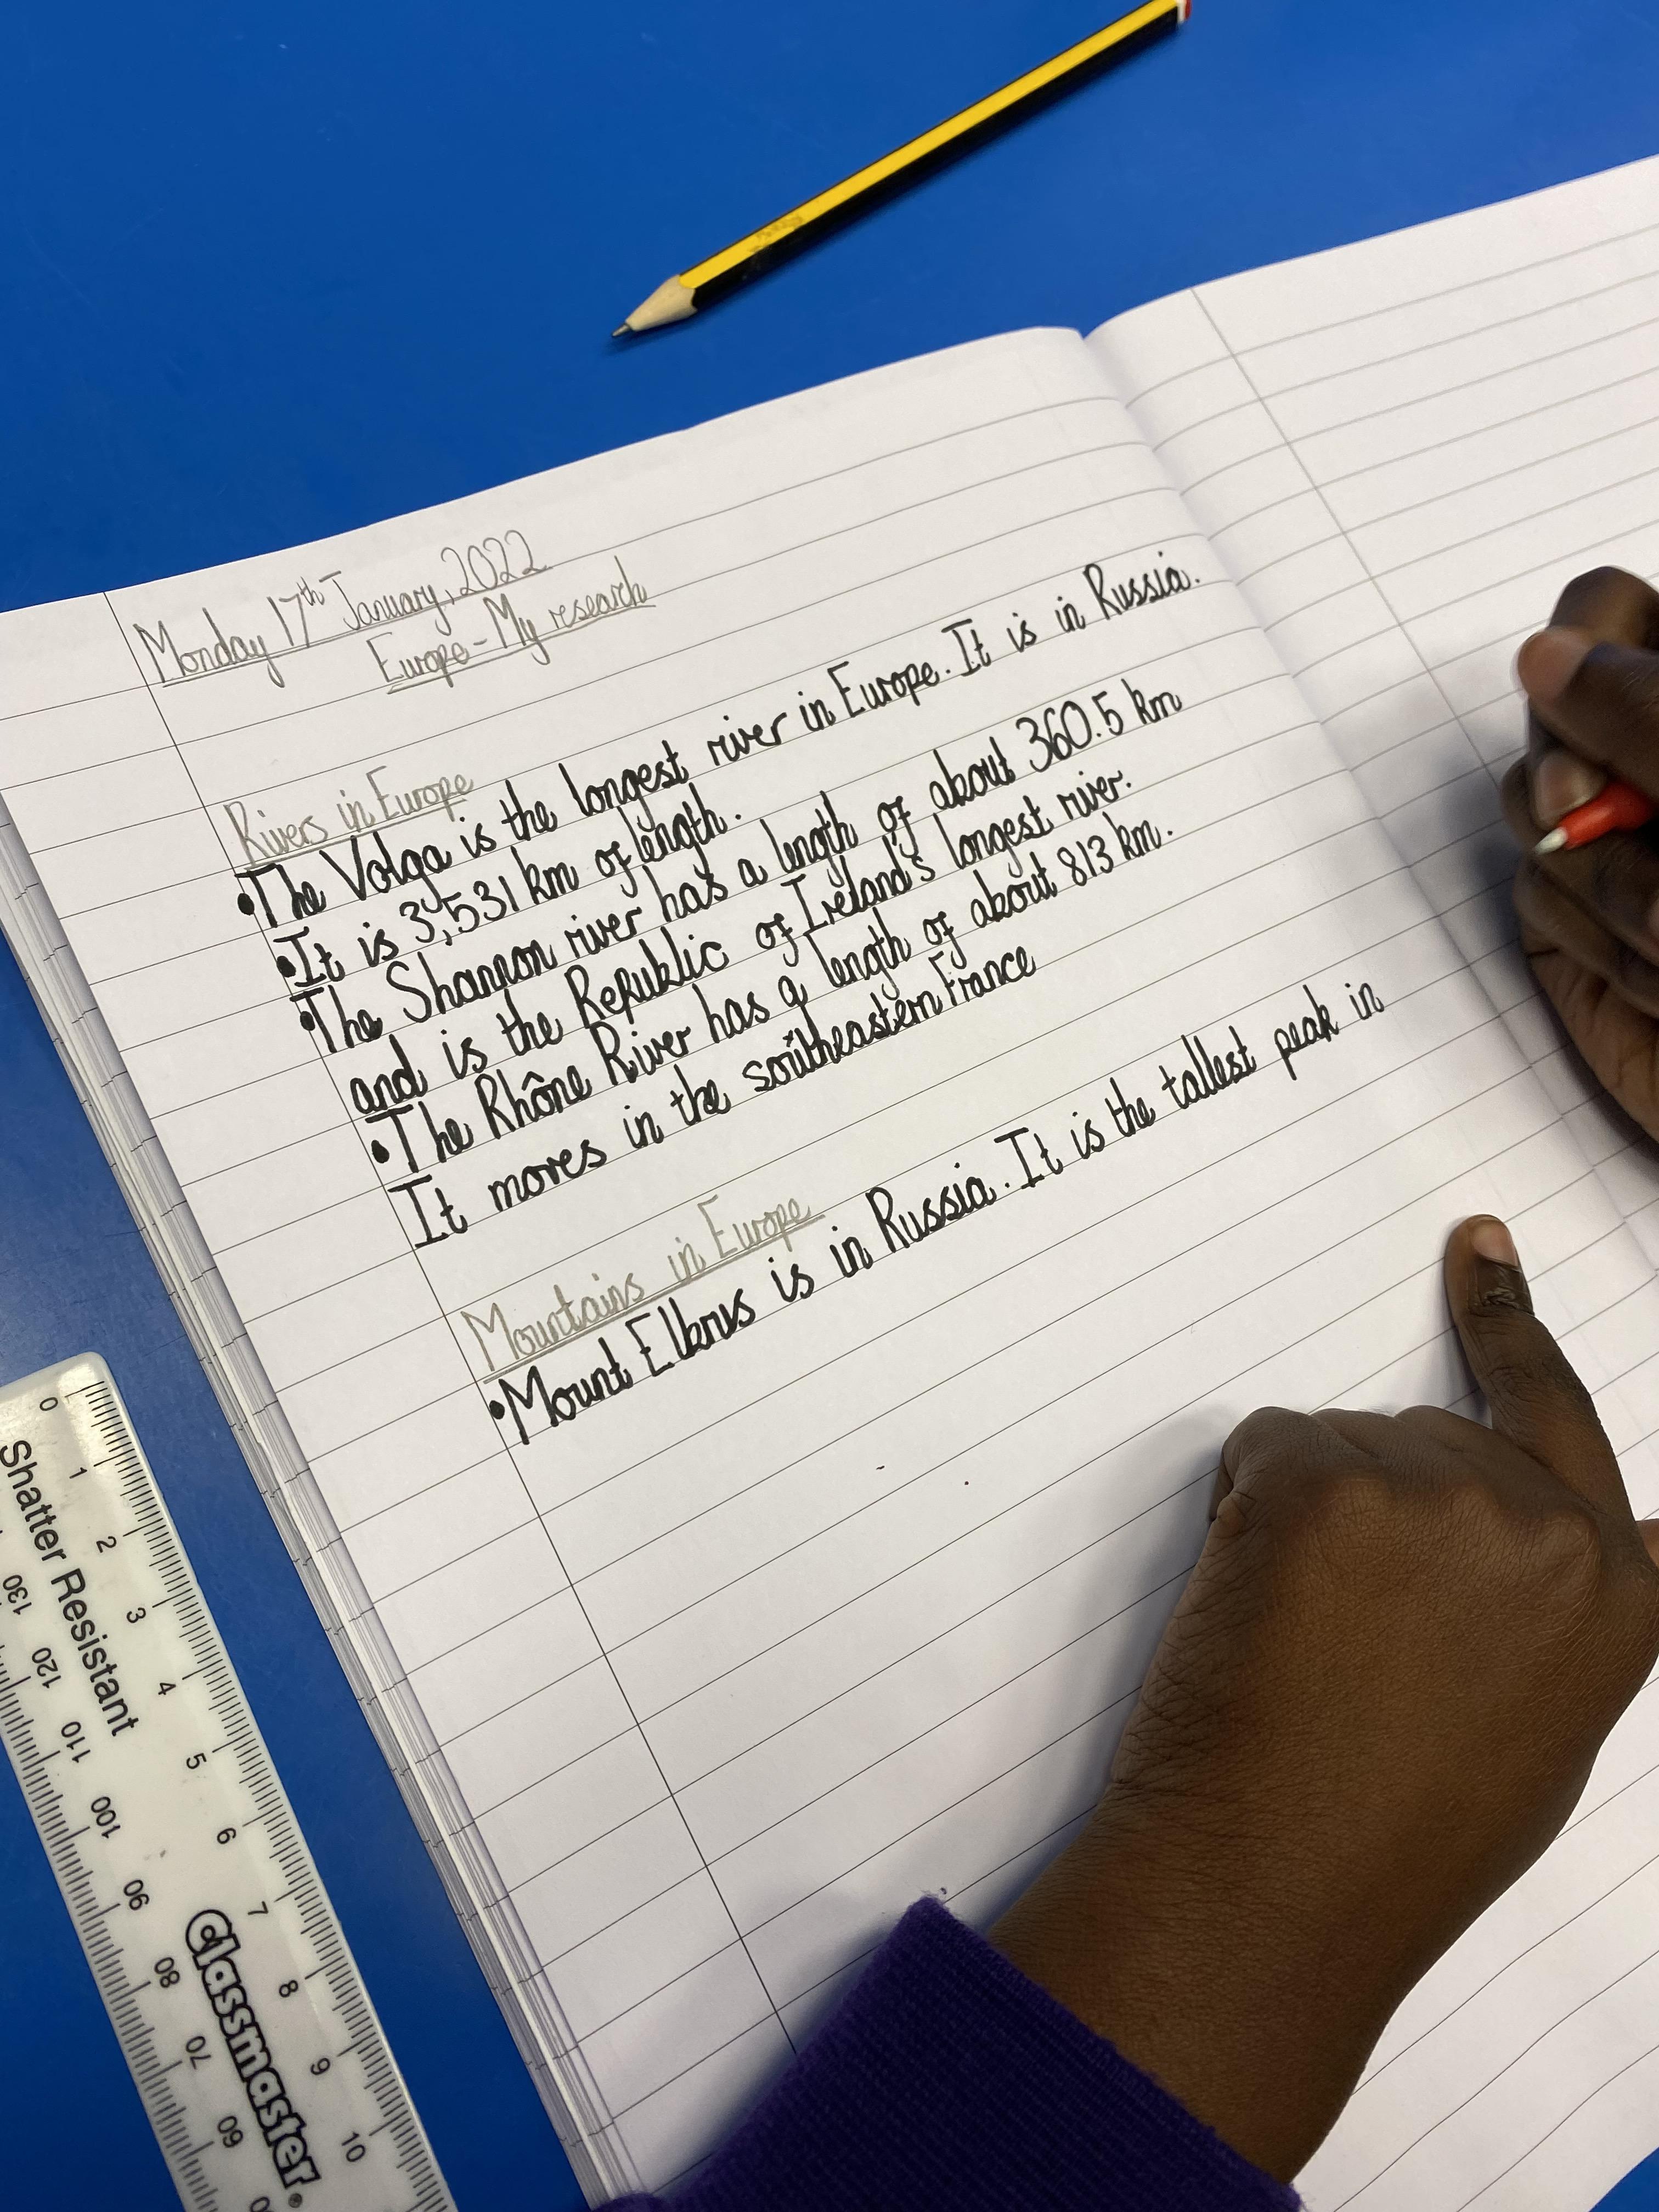 Monday 17th January, 2022
Europe - My research
Rivers in Europe
• The Volga is the longest river in Europe. It is in Russia.
• It is 3,531 km of length.
• The Shannon river has a length of about 360.5 km
and is the Republic of Ireland's longest river.
• The Rhône River has a length of about 813 km.
It moves in the southeastern France
Mountains in Europe
• Mount Elbrus is in Russia. It is the tallest peak in
0 1 2 3 4 5 6 7 8 9 10
Shatter Resistant
Classmaster®
130 120 110 100 90 80 70 60